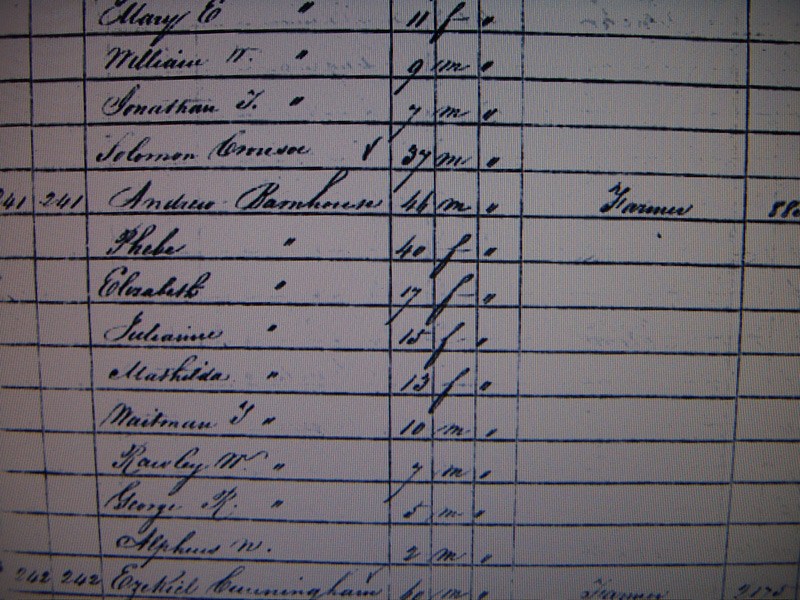 Mary E " 11 f "
William W. " 9 m "
Jonathan T. " 7 m "
Solomon 37 m "
241 241 Andrew Barnhouse 44 m " Farmer
Phebe " 40 f "
Elizabeth " 17 f "
Julianne " 15 f "
Mathilda " 13 f "
Waitman T " 10 m "
Rawley W. " 7 m "
George K. " 5 m "
Alpheus W. 2 m "
242 242 Ezekiel Cunningham 60 m " Farmer